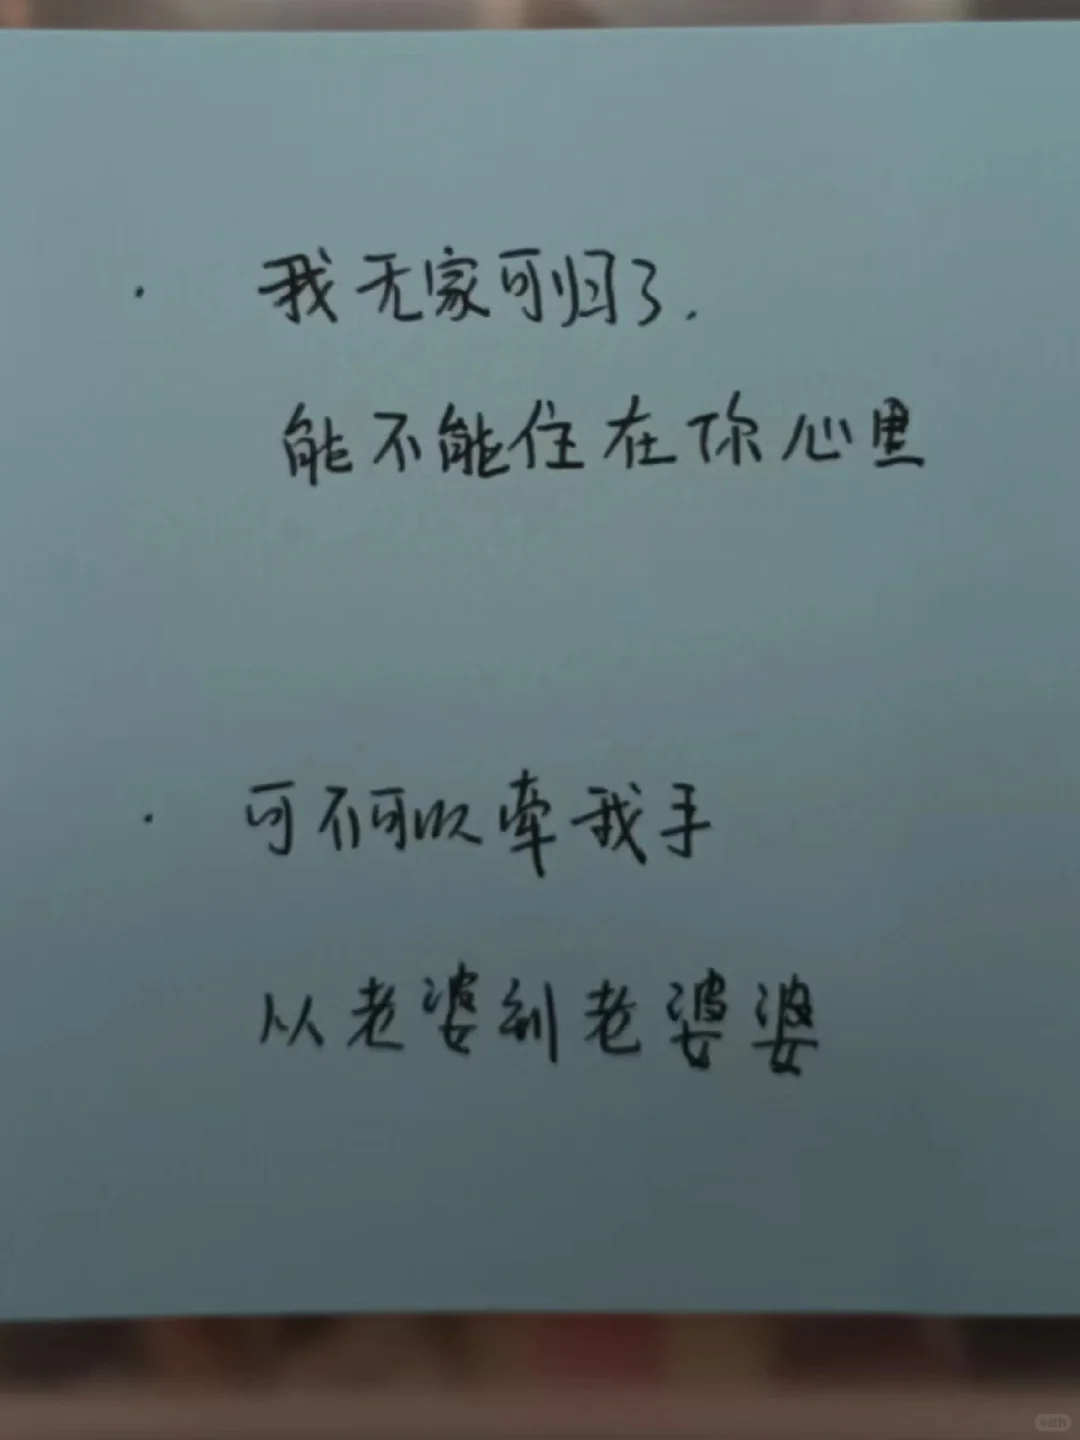 · 我无家可归了.
能不能住在你心里
· 可不可以牵我手
从老婆到老婆婆